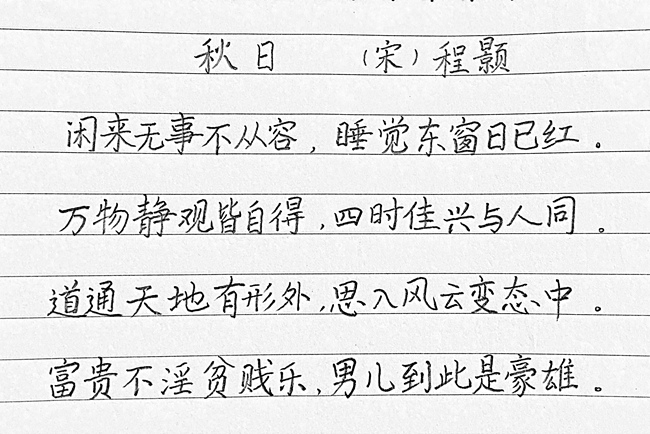 秋日 （宋）程颢
闲来无事不从容，睡觉东窗日已红。
万物静观皆自得，四时佳兴与人同。
道通天地有形外，思入风云变态中。
富贵不淫贫贱乐，男儿到此是豪雄。